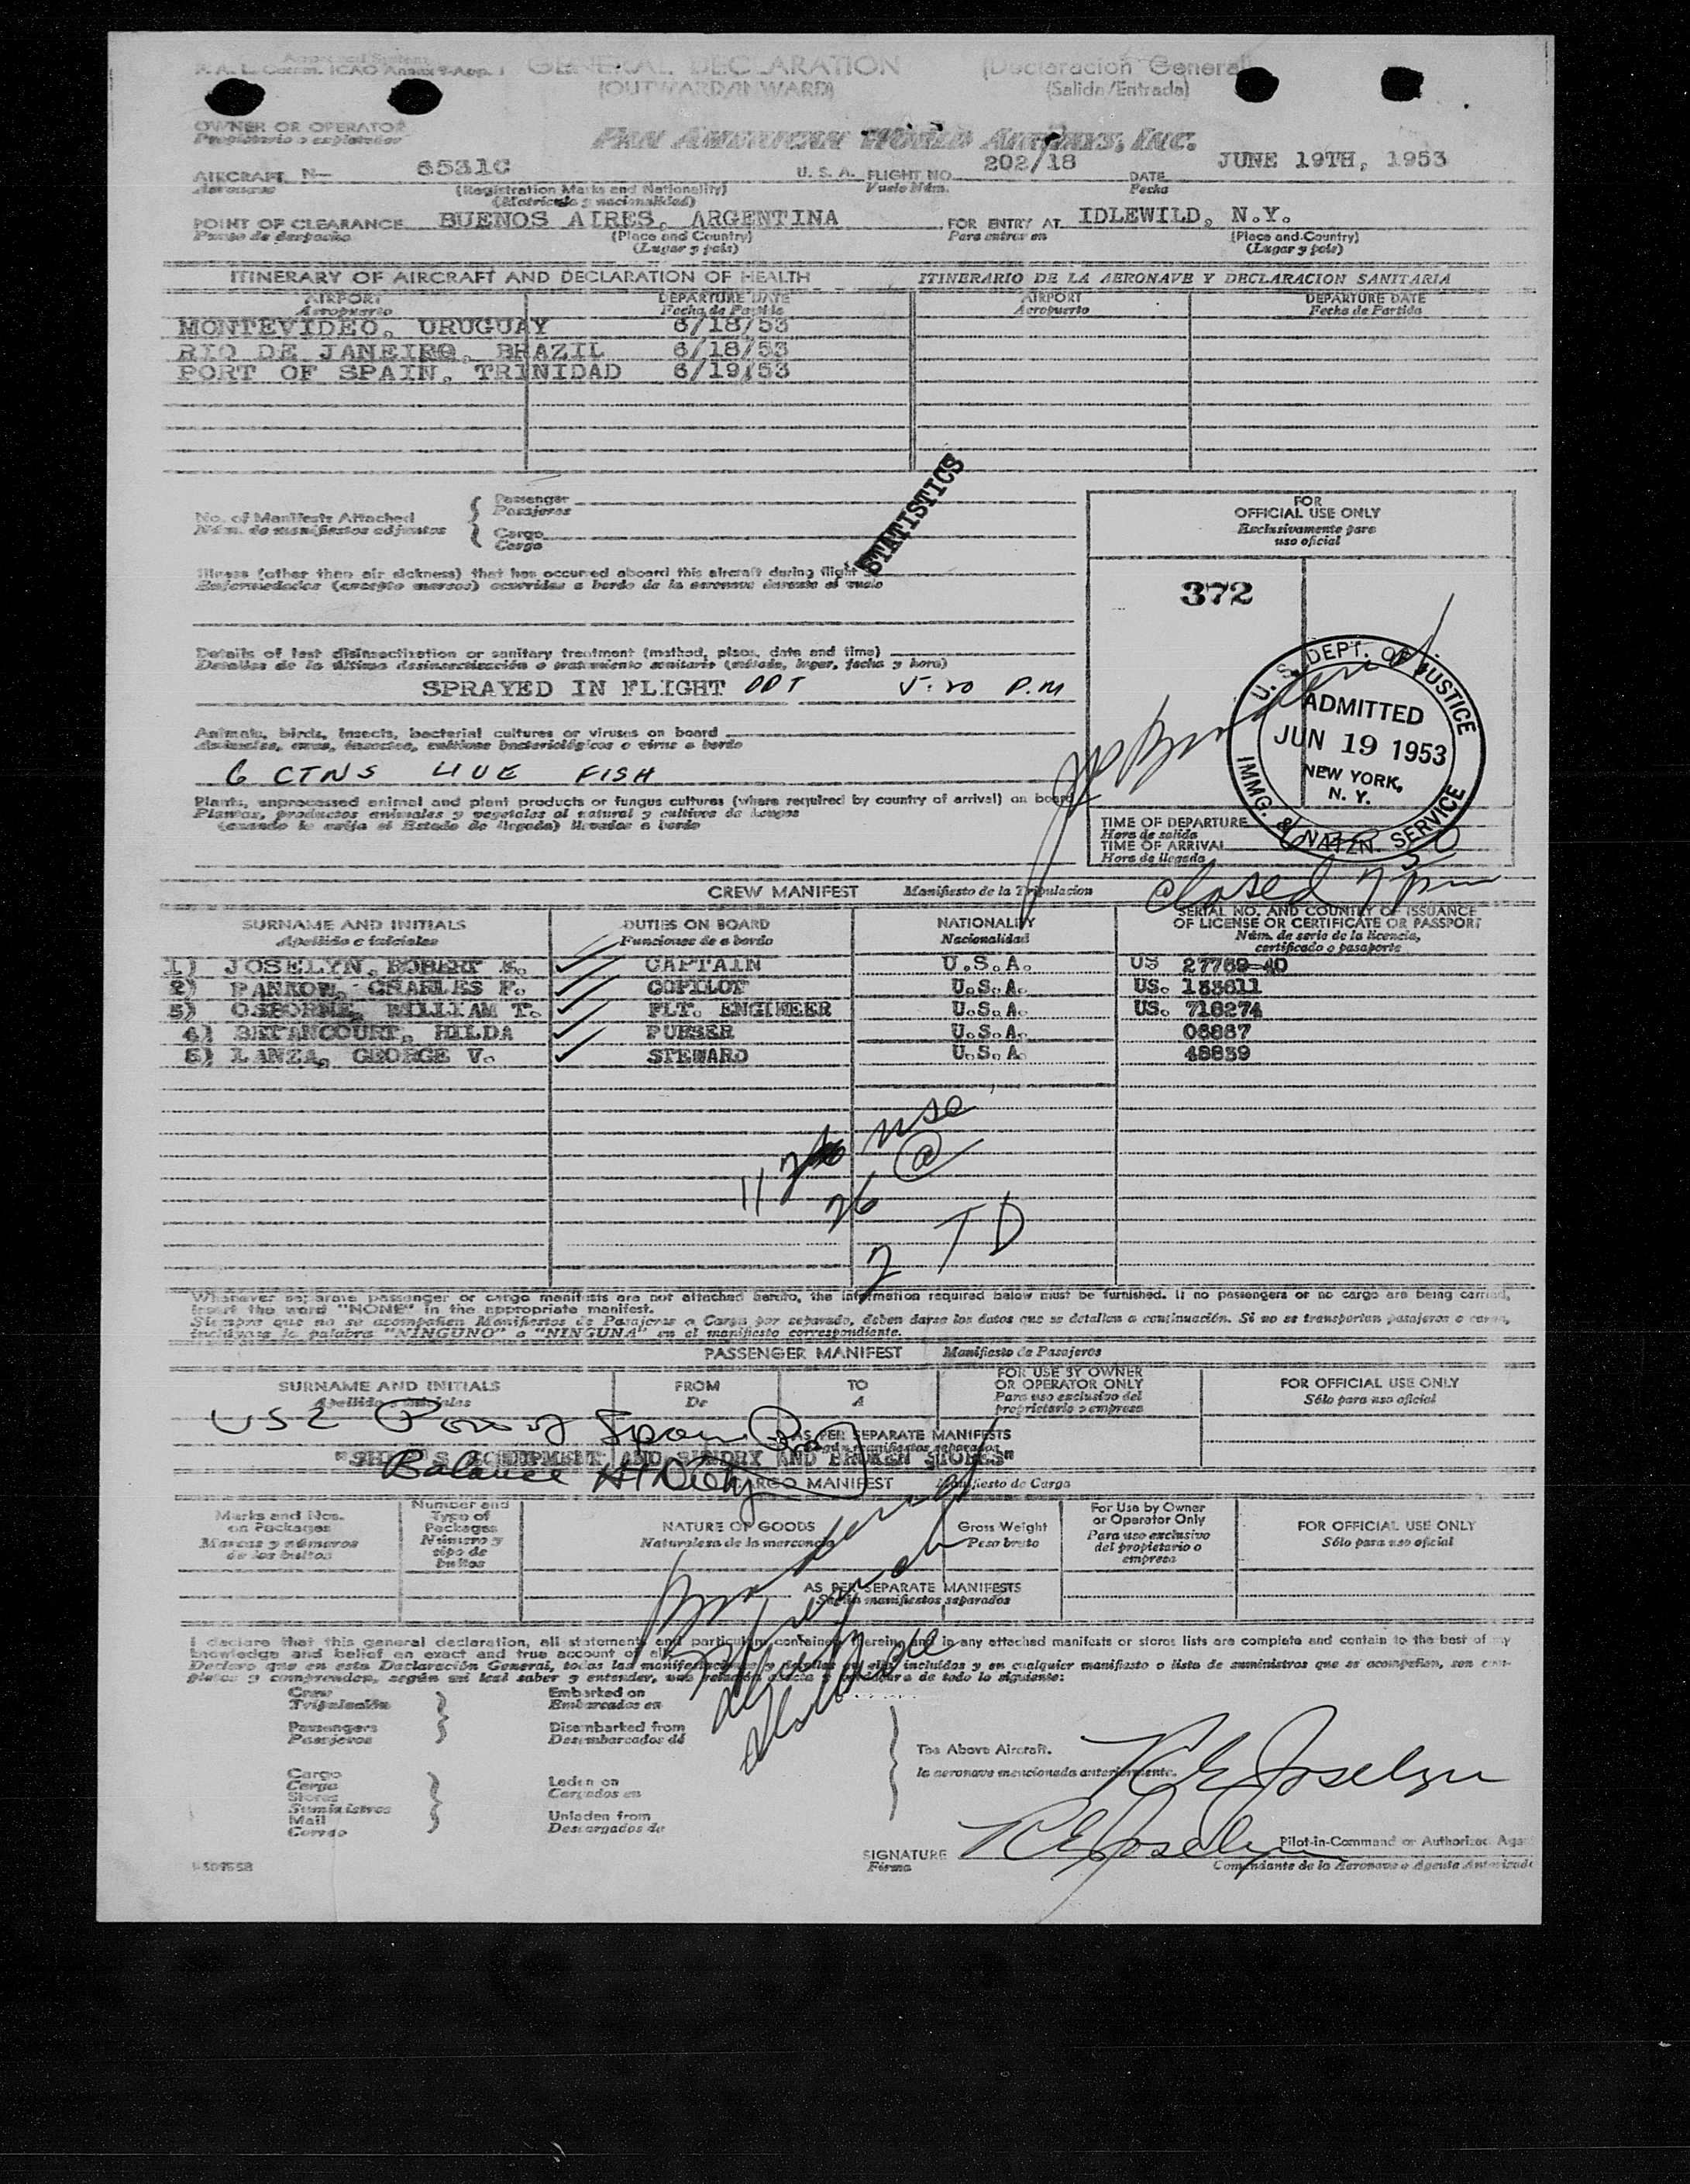 F. A. L. Comm. ICAO Annex 9-App. 1
GENERAL DECLARATION (Declaracion General)
(OUTWARD/INWARD) (Salida/Entrada)
OWNER OR OPERATOR
Propietario o explotador
PAN AMERICAN WORLD AIRWAYS, INC.
AIRCRAFT N- 6531C U. S. A. FLIGHT NO. 202/18 DATE JUNE 19TH, 1953
Aeronave (Registration Marks and Nationality) Vuelo Núm. Fecha
(Matrícula y nacionalidad)
POINT OF CLEARANCE BUENOS AIRES, ARGENTINA FOR ENTRY AT IDLEWILD, N.Y.
Punto de despacho (Place and Country) Para entrar en (Place and Country)
(Lugar y país) (Lugar y país)
ITINERARY OF AIRCRAFT AND DECLARATION OF HEALTH ITINERARIO DE LA AERONAVE Y DECLARACION SANITARIA
AIRPORT DEPARTURE DATE AIRPORT DEPARTURE DATE
Aeropuerto Fecha de Partida Aeropuerto Fecha de Partida
MONTEVIDEO, URUGUAY 6/18/53
RIO DE JANEIRO, BRAZIL 6/18/53
PORT OF SPAIN, TRINIDAD 6/19/53
STATISTICS
No. of Manifests Attached
Núm. de manifiestos adjuntos
Passenger
Pasajeros
Cargo
Cargo
FOR
OFFICIAL USE ONLY
Exclusivamente para
uso oficial
Illness (other than air sickness) that has occurred aboard this aircraft during flight
Enfermedades (excepto mareos) ocurridas a bordo de la aeronave durante el vuelo
372
Details of last disinsectization or sanitary treatment (method, place, date and time)
Detalles de la última desinsectización o tratamiento sanitario (método, lugar, fecha y hora)
SPRAYED IN FLIGHT DDT 5:20 P.M
U. S. DEPT. OF JUSTICE
ADMITTED
JUN 19 1953
NEW YORK,
N. Y.
IMMG. & NATZN. SERVICE
Animals, birds, insects, bacterial cultures or viruses on board
Animales, aves, insectos, cultivos bacteriológicos o virus a bordo
6 CTNS LIVE FISH
Plants, unprocessed animal and plant products or fungus cultures (where required by country of arrival) on board
Plantas, productos animales y vegetales al natural y cultivos de hongos
(cuando lo exija el Estado de llegada) llevados a bordo
TIME OF DEPARTURE
Hora de salida
TIME OF ARRIVAL
Hora de llegada
closed
CREW MANIFEST Manifiesto de la Tripulacion
SURNAME AND INITIALS DUTIES ON BOARD NATIONALITY SERIAL NO. AND COUNTRY OF ISSUANCE
OF LICENSE OR CERTIFICATE OR PASSPORT
Apellido e iniciales Funciones de a bordo Nacionalidad Núm. de serie de la licencia,
certificado o pasaporte
1) JOSELYN, ROBERT E. CAPTAIN U.S.A. US 27769-40
2) PANKOW, CHARLES F. COPILOT U.S.A. US. 133611
3) OSBORNE, WILLIAM T. FLT. ENGINEER U.S.A. US. 718274
4) BETANCOURT, HILDA PURSER U.S.A. 06887
5) LANZA, GEORGE V. STEWARD U.S.A. 48839
11
26
2 TD
Whenever separate passenger or cargo manifests are not attached hereto, the information required below must be furnished. If no passengers or no cargo are being carried,
insert the word "NONE" in the appropriate manifest.
Siempre que no se acompañen Manifiestos de Pasajeros o Carga por separado, deben darse los datos que se detallan a continuación. Si no se transportan pasajeros o carga,
inclúyase la palabra "NINGUNO" o "NINGUNA" en el manifiesto correspondiente.
PASSENGER MANIFEST Manifiesto de Pasajeros
SURNAME AND INITIALS FROM TO FOR USE BY OWNER
OR OPERATOR ONLY FOR OFFICIAL USE ONLY
Apellido e iniciales De A Para uso exclusivo del
propietario o empresa Sólo para uso oficial
AS PER SEPARATE MANIFESTS
Según manifiestos separados
"SHIP'S EQUIPMENT AND SUNDRY AND BROKEN STORES"
Balance
CARGO MANIFEST Manifiesto de Carga
Marks and Nos.
on Packages
Marcas y números
de los bultos
Number and
Type of
Packages
Número y
tipo de
bultos
NATURE OF GOODS
Naturaleza de la mercancía
Gross Weight
Peso bruto
For Use by Owner
or Operator Only
Para uso exclusivo
del propietario o
empresa
FOR OFFICIAL USE ONLY
Sólo para uso oficial
AS PER SEPARATE MANIFESTS
Según manifiestos separados
I declare that this general declaration, all statements and particulars contained therein, and in any attached manifests or stores lists are complete and contain to the best of my
knowledge and belief an exact and true account of all:
Crew
Tripulación
Passengers
Pasajeros
Embarked on
Embarcados en
Disembarked from
Desembarcados de
Cargo
Carga
Stores
Suministros
Mail
Correo
Laden on
Cargados en
Unladen from
Descargados de
The Above Aircraft.
la aeronave mencionada anteriormente.
R E Joselyn
SIGNATURE R E Joselyn
Firma
Pilot-in-Command or Authorized Agent
Comandante de la Aeronave o Agente Autorizado